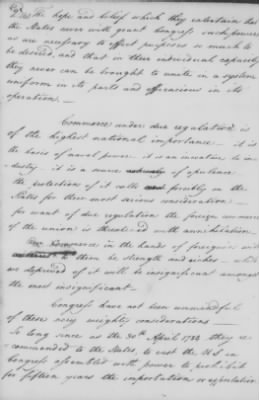 The hope and belief which they entertain that
the States never will grant Congress such powers
as are necessary to effect purposes so much to
be desired, and that in their individual capacity
they never can be brought to unite in a system
uniform in its parts and efficacious in its
operation —
Commerce under due regulation is
of the highest national importance — it is
the basis of naval power — it is an incentive to in-
dustry — it is a source of opulence
the protection of it calls forcibly on the
States for their most serious consideration —
for want of due regulation the foreign commerce
of the union is threatened with annihilation —
Commerce in the hands of foreigners will
to them be strength and riches — while we
deprived of it will be insignificant amongst
the most insignificant —
Congress have not been unmindful
of these very weighty considerations —
So long since as the 30th April 1784 they re-
commended to the States, to vest the U.S in
Congress assembled with power to prohibit
for fifteen years the importation or exportation